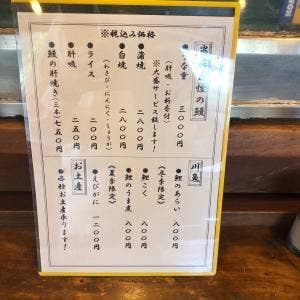 ※税込み価格
の鰻
な重 三〇〇〇円
(肝吸・お新香付)
※大盛サービス致します!
●蒲焼 二八〇〇円
●白焼 二八〇〇円
(わさび・にんにく・しょうが)
●ライス 二〇〇円
●肝吸 二〇〇円
●鰻の肝焼き(三本)七五〇円
川魚
●鯉のあらい 八〇〇円
(冬季限定)
●鯉こく 八〇〇円
●鯉のうま煮 八〇〇円
(夏季限定)
●えびがに 一二〇〇円
お土産
●各種お土産承ります!